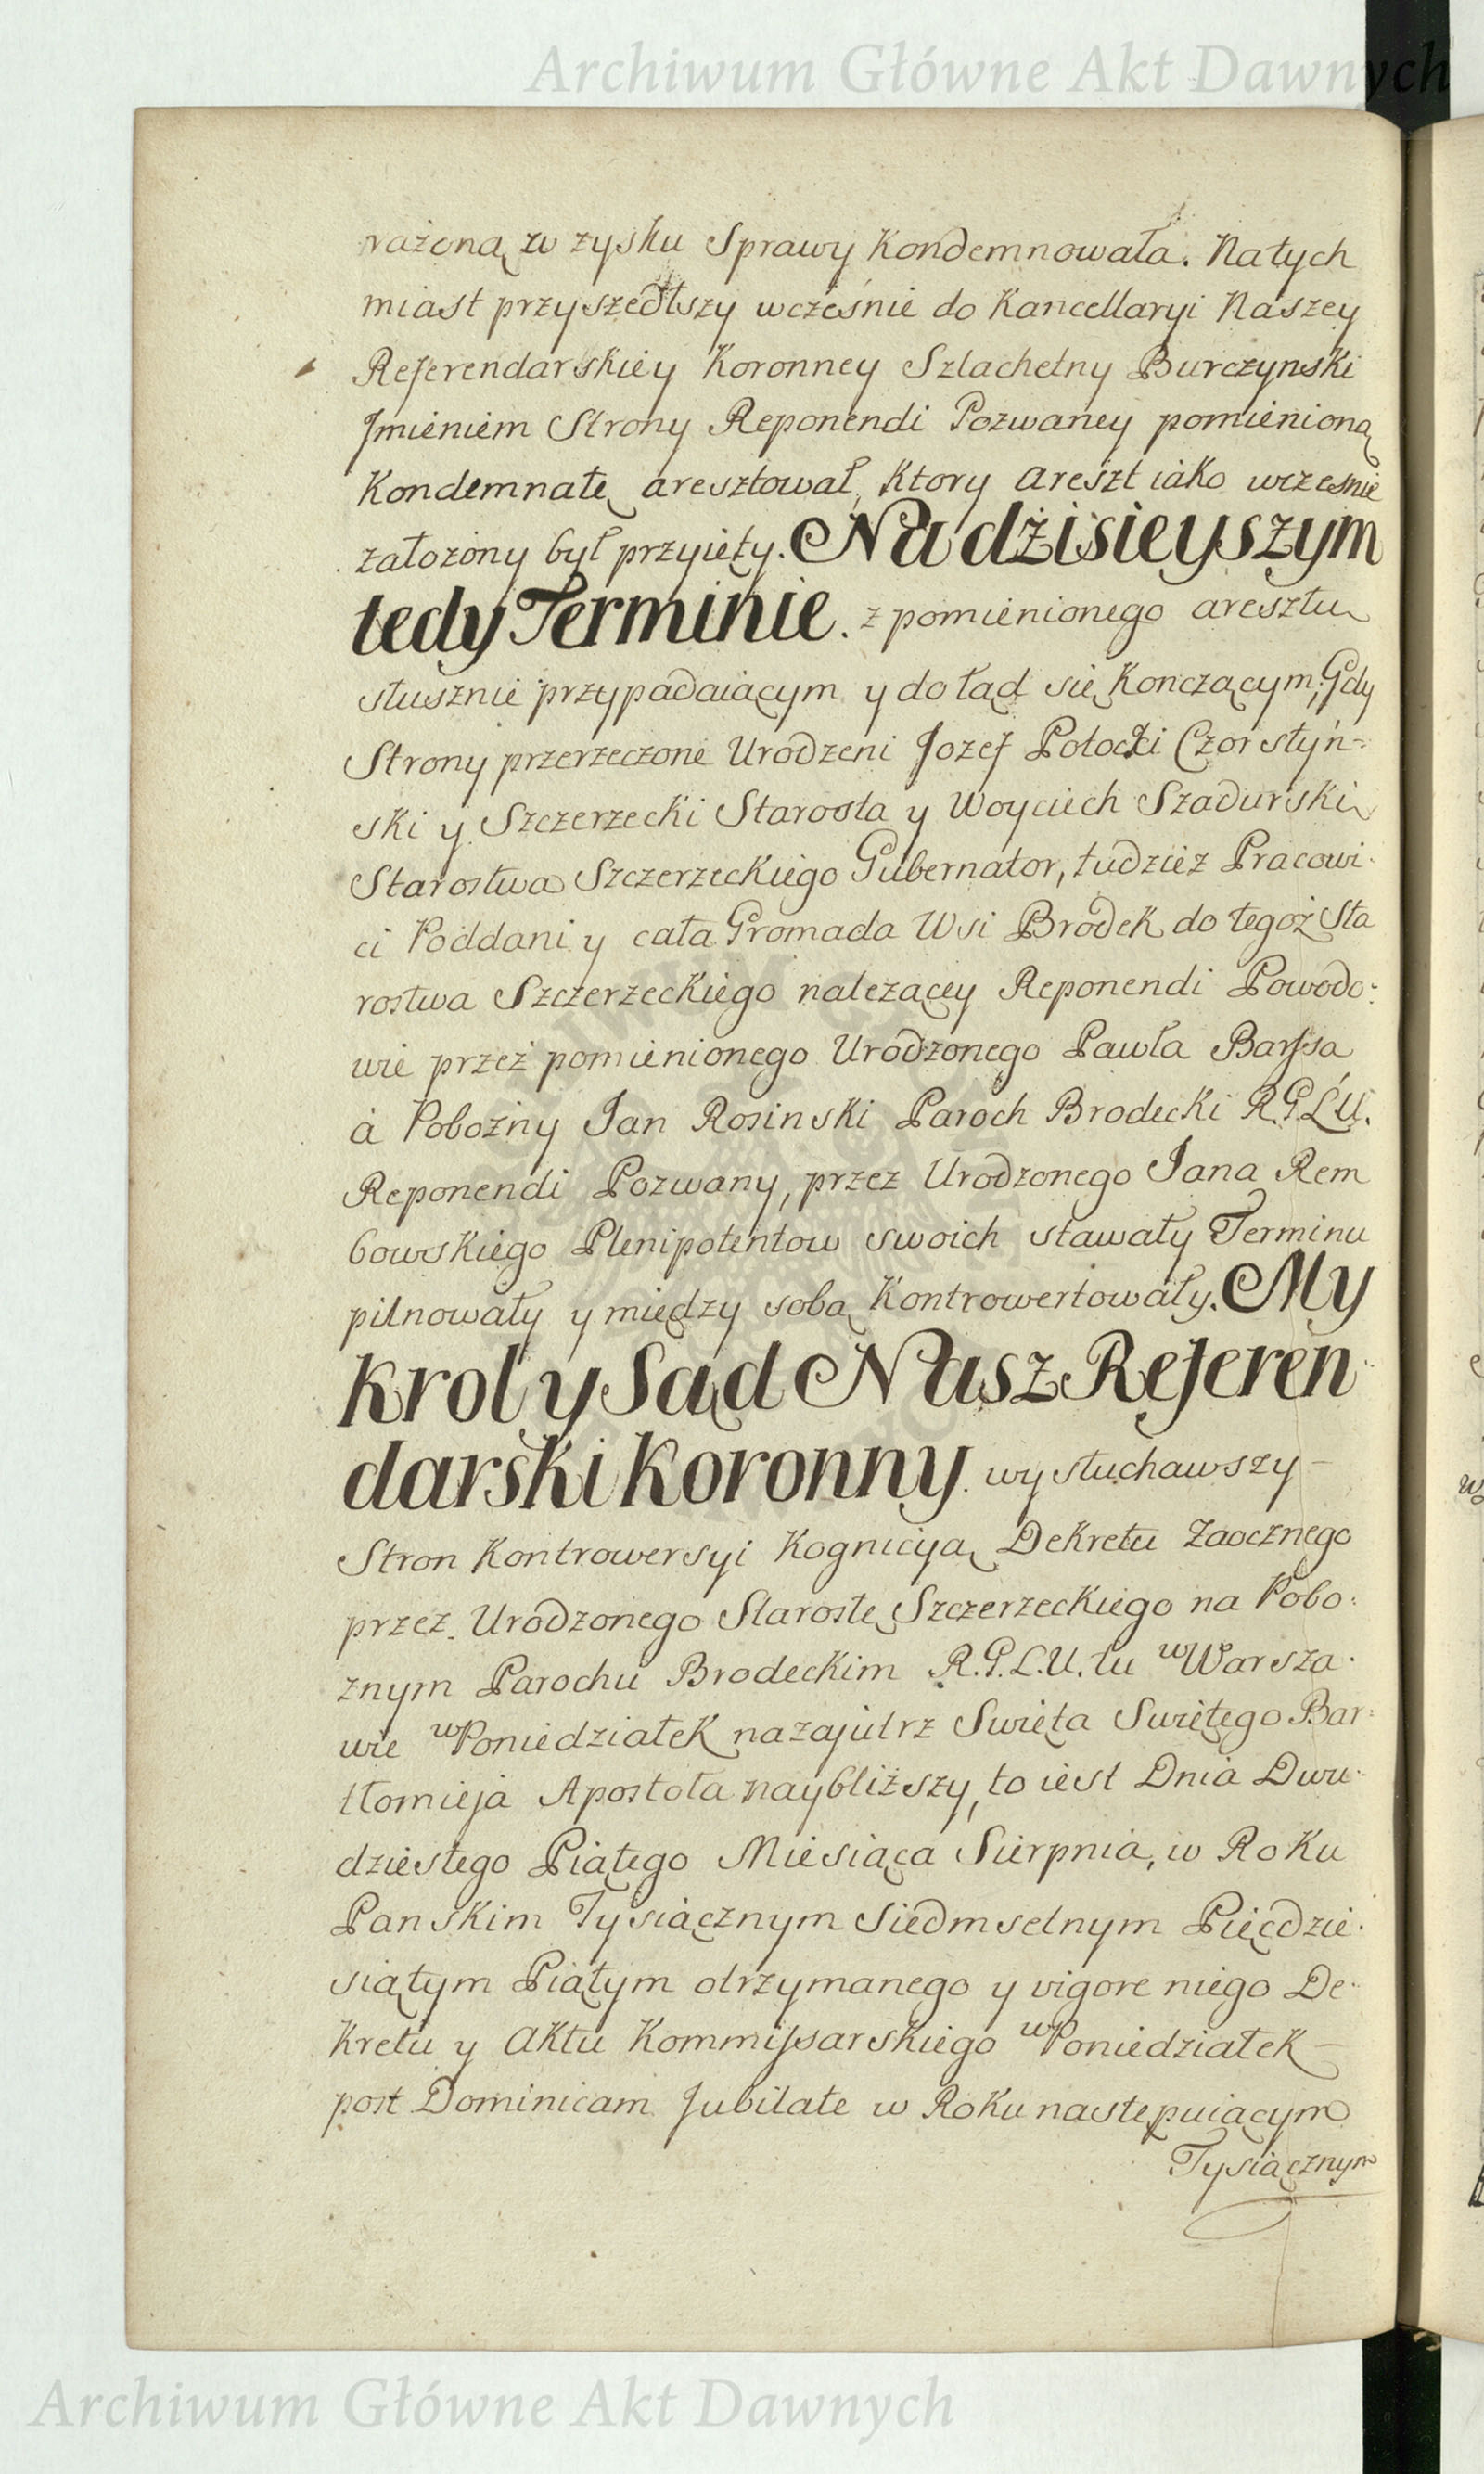 Archiwum Główne Akt Dawnych
rażoną w zysku Sprawy Kondemnowała. Natych
miast przyszedłszy wcześnie do Kancellaryi Naszey
Referendarskiey Koronney Szlachetny Burczynski
Jmieniem Strony Reponendi Pozwaney pomienioną
Kondemnatę aresztował, Ktory areszt iako wcześnie
założony był przyięty. Na dzisieyszym
tedy Terminie. z pomienionego aresztu
słusznie przypadaiącym y do tąd się Konczącym, Gdy
Strony przerzeczone Urodzeni Jozef Potocki Czorstyń-
ski y Szczerzecki Starosta y Woyciech Szadurski
Starostwa Szczerzeckiego Gubernator, tudzież Pracowi-
ci Poddani y cała Gromada Wsi Brodek do tegoż Sta
rostwa Szczerzeckiego należącey Reponendi Powodo-
wie przez pomienionego Urodzonego Pawła Barssa
à Pobożny Jan Rosinski Paroch Brodecki R.G.L.U.
Reponendi Pozwany, przez Urodzonego Jana Rem
bowskiego Plenipotentow swoich stawały Terminu
pilnowały y między sobą Kontrowertowały. My
Krol y Sąd Nasz Referen-
darski Koronny. wysłuchawszy
Stron Kontrowersyi Kognicyą Dekretu Zaocznego
przez Urodzonego Starostę Szczerzeckiego na Pobo-
żnym Parochu Brodeckim R.G.L.U. tu w Warsza-
wie w Poniedziałek nazajutrz Swięta Swiętego Bar-
tłomieja Apostoła naybliższy, to iest Dnia Dwu-
dziestego Piątego Miesiąca Sierpnia, w Roku
Panskim Tysiącznym Siedmsetnym Pięćdzie-
siątym Piątym otrzymanego y vigore niego De-
kretu y Aktu Kommissarskiego w Poniedziałek
post Dominicam Jubilate w Roku nastepuiącym
Tysiącznym
Archiwum Główne Akt Dawnych